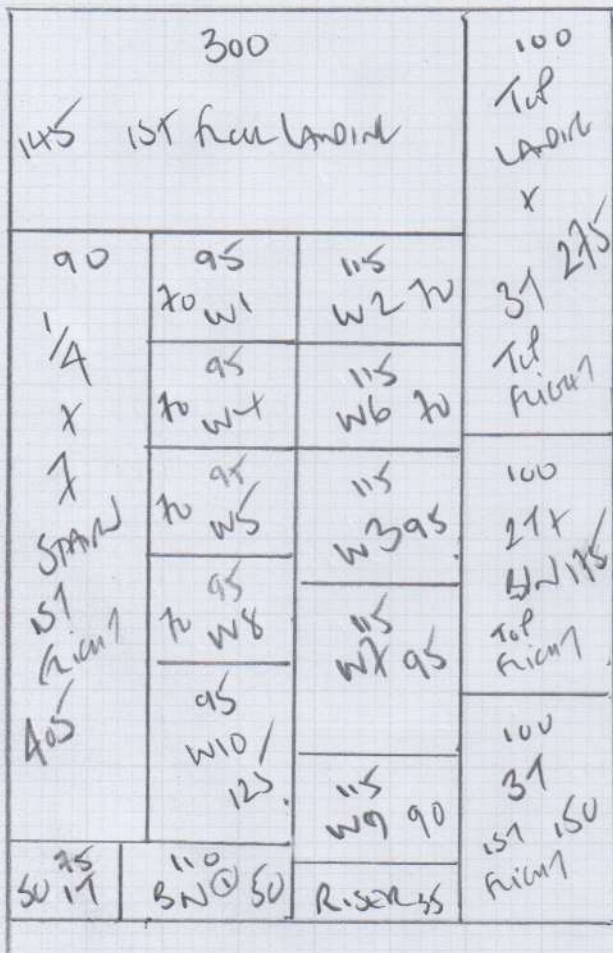 300
145 1ST FLOOR LANDING
100
TOP
LANDING
X
3T 275
TOP
FLIGHT
90
1/4
X
7
STAIRS
1ST
FLIGHT
405
95
70 W1
95
70 W4
95
70 W5
95
70 W8
95
W10
125
115
W2 70
115
W6 70
115
W3 95
115
W7 95
115
W9 90
100
2T X
BN 175
TOP
FLIGHT
100
3T
1ST 150
FLIGHT
75
50 1T
110
BN ① 50
RISER 35